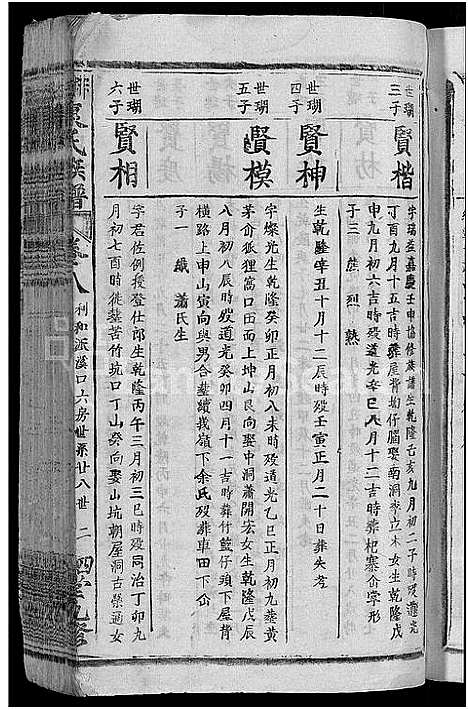 世瑚
三子
賢楷
字瑞益嘉慶壬申協修族譜生乾隆己亥九月初二子時歿道光
丁酉九月十五吉時葬屋背坳仔腦娶南洞麥立木女生乾隆戊
申九月初六吉時歿道光辛巳八月十二吉時葬杞寨介掌形
子三 熊 烈 熟
世瑚
四子
賢神
生乾隆辛丑十月十二辰時歿壬寅正月二十日葬失考
世瑚
五子
賢模
字燦光生乾隆癸卯正月初八未時歿道光乙巳正月初九葬黃
茅㘵狐狸窩口田面上坤山艮向娶中洞蕭開宏女生乾隆戊辰
八月初八辰時歿道光癸卯四月十一吉時葬竹籃仔頭下屋背
橫路上申山寅向與男合葬續娥嶺下余氏歿葬車田下㘵
子一 織 蕭氏生
世瑚
六子
賢相
字君佐例授登仕郎生乾隆丙午三月初三巳時歿同治丁卯九
月初七酉時從葬苦竹坑口丁山癸向娶山坑朝屋洞古榮通女
氏族譜
卷八
利和派溪口六房世系廿八世
二